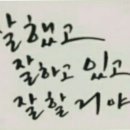 잘했고
잘하고 있고
잘할 거야